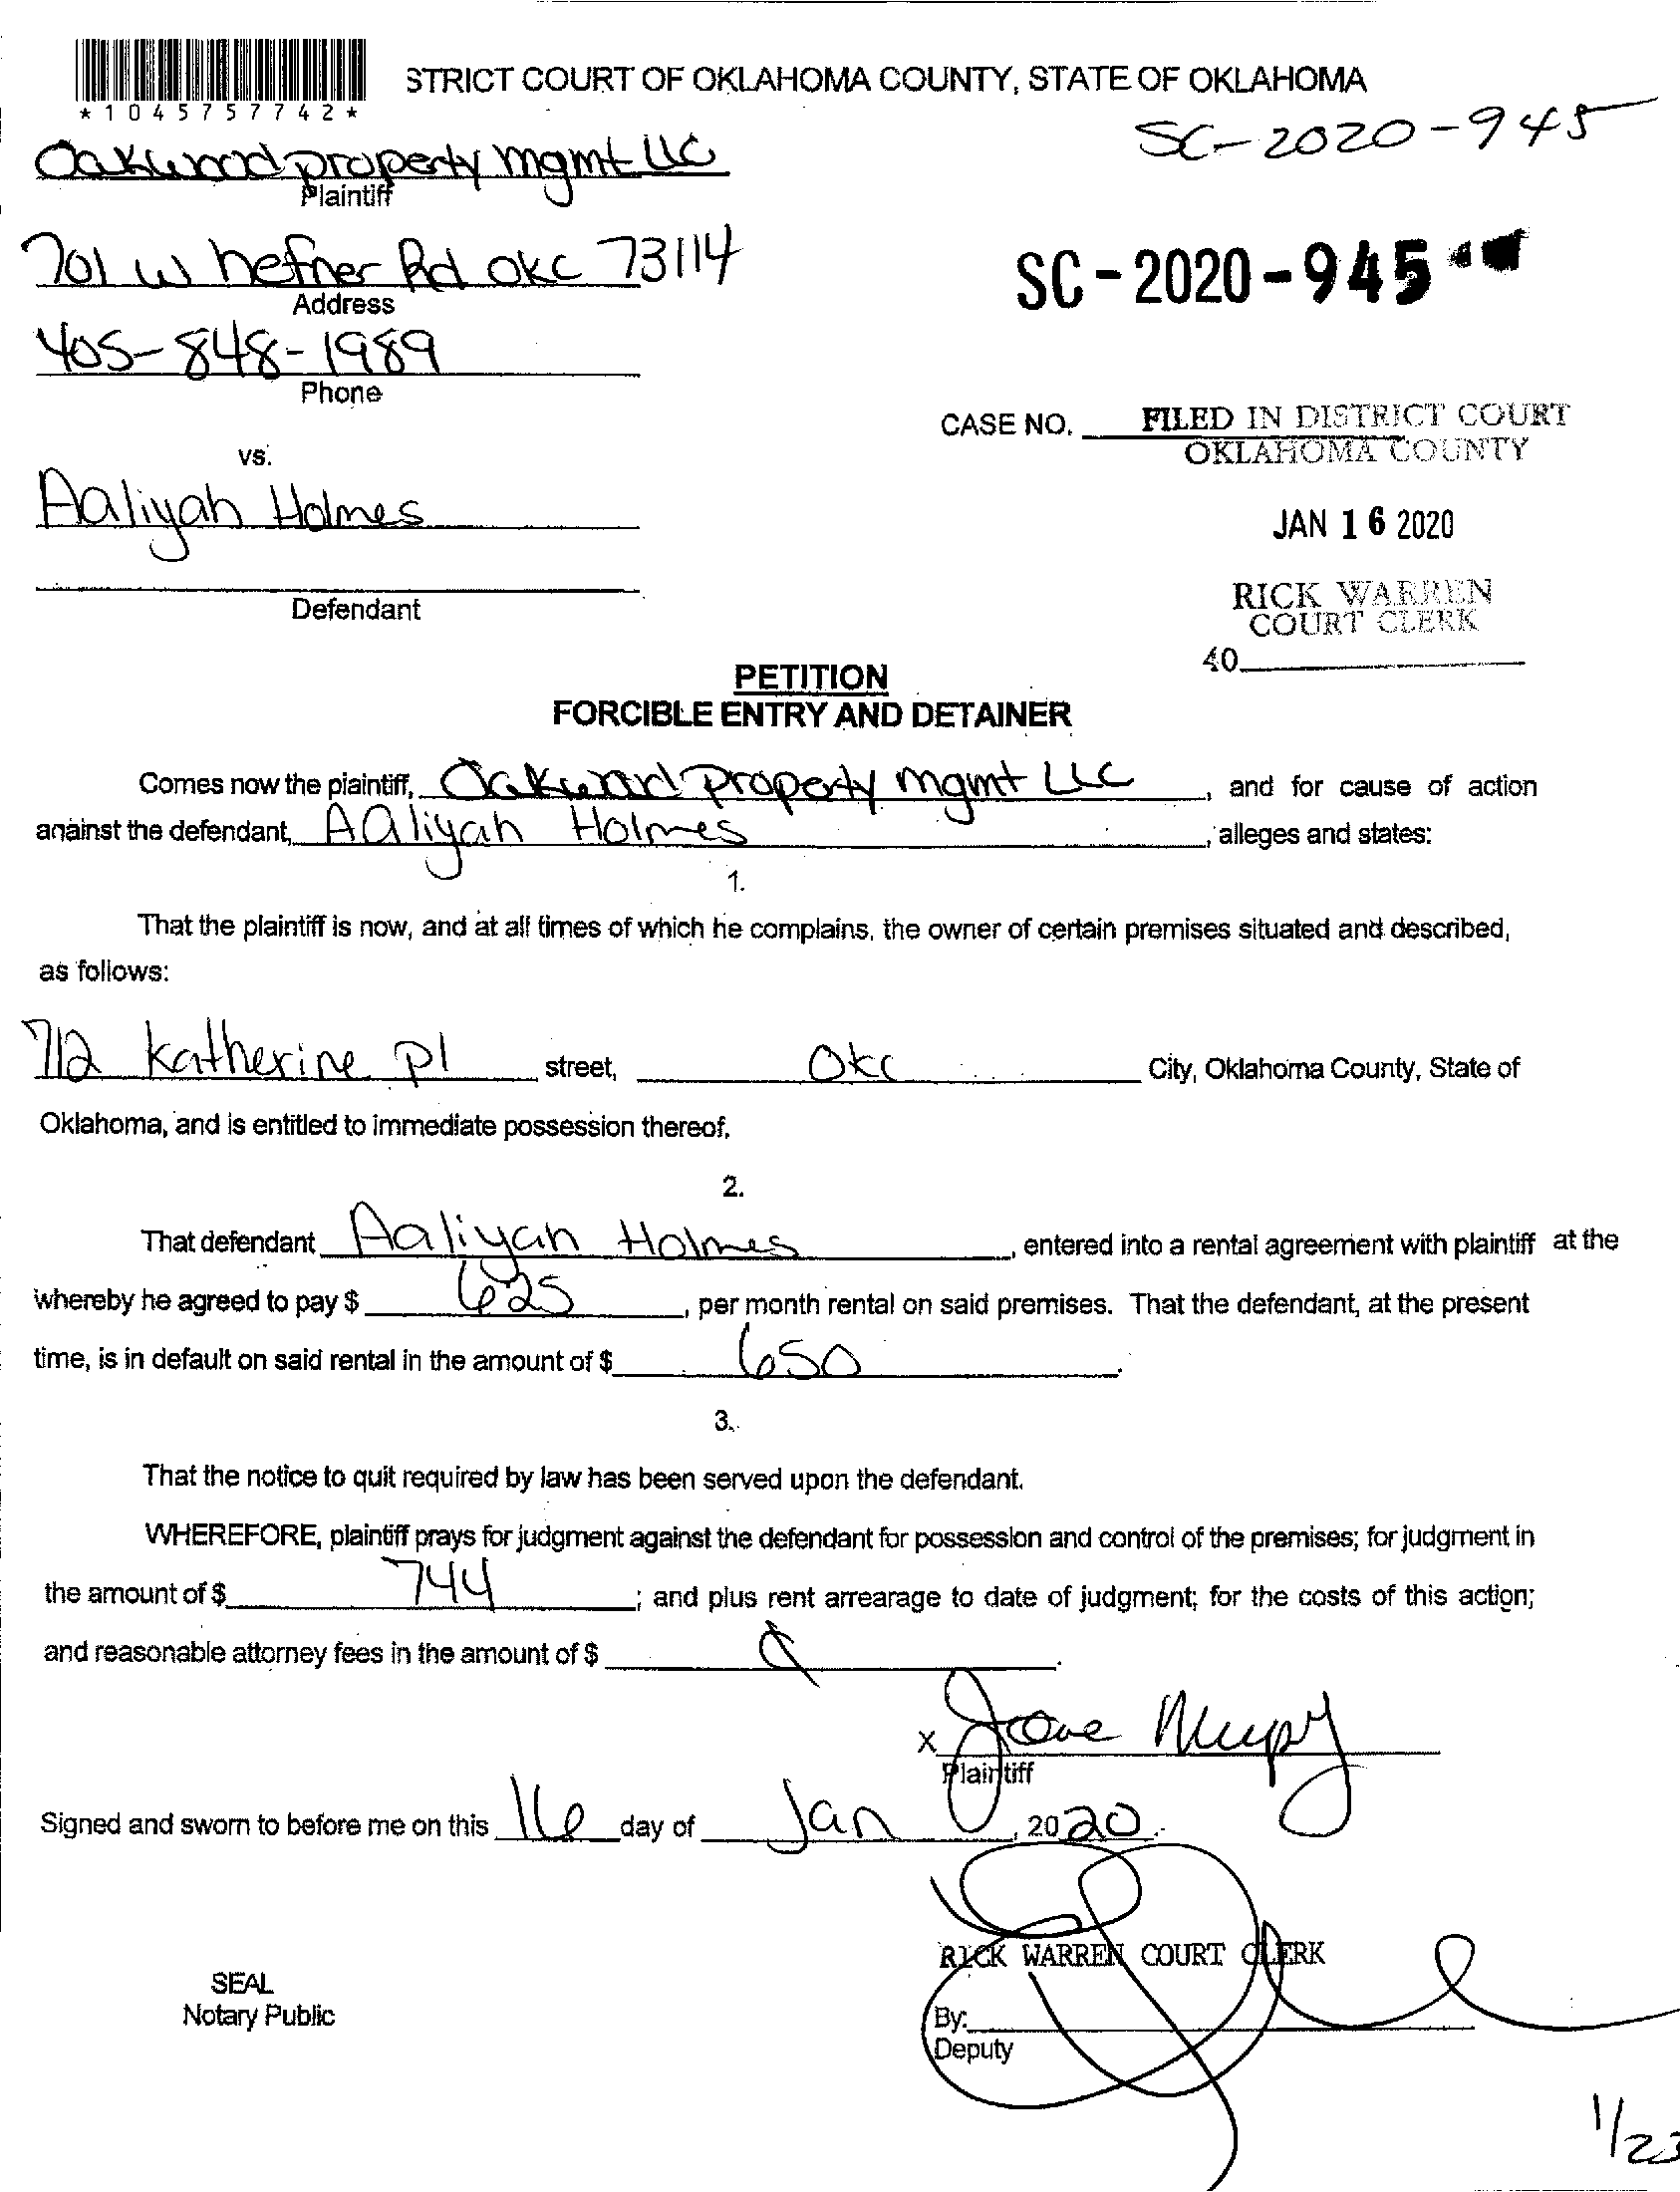 STRICT COURT OF OKLAHOMA COUNTY, STATE OF OKLAHOMA
*1045757742*
SC-2020-945
Oakwood property mgmt LLC
Plaintiff
701 W hefner Rd OKC 73114
Address
SC-2020-945
405-848-1989
Phone
CASE NO.
FILED IN DISTRICT COURT
OKLAHOMA COUNTY
vs.
Aaliyah Holmes
JAN 16 2020
Defendant
RICK WARREN
COURT CLERK
40
PETITION
FORCIBLE ENTRY AND DETAINER
Comes now the plaintiff, Oakwood Property mgmt LLC, and for cause of action
against the defendant, AAliyah Holmes, alleges and states:
1.
That the plaintiff is now, and at all times of which he complains, the owner of certain premises situated and described,
as follows:
712 Katherine Pl street, OKC City, Oklahoma County, State of
Oklahoma, and is entitled to immediate possession thereof.
2.
That defendant Aaliyah Holmes, entered into a rental agreement with plaintiff at the
whereby he agreed to pay $ 625, per month rental on said premises. That the defendant, at the present
time, is in default on said rental in the amount of $ 650.
3.
That the notice to quit required by law has been served upon the defendant.
WHEREFORE, plaintiff prays for judgment against the defendant for possession and control of the premises; for judgment in
the amount of $ 744; and plus rent arrearage to date of judgment; for the costs of this action;
and reasonable attorney fees in the amount of $
X
Plaintiff
Signed and sworn to before me on this 16 day of Jan, 2020.
RICK WARREN COURT CLERK
SEAL
Notary Public
By:
Deputy
1/23